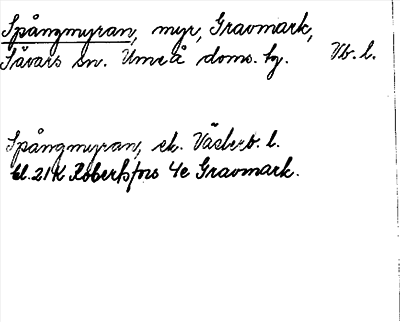 Spångmyran, myr, Gravmark,
Sävars sn. Umeå doms. hg. Vb. l.
Spångmyran, ek. Västerb. l.
bl. 21K Robertsfors 4e Gravmark.